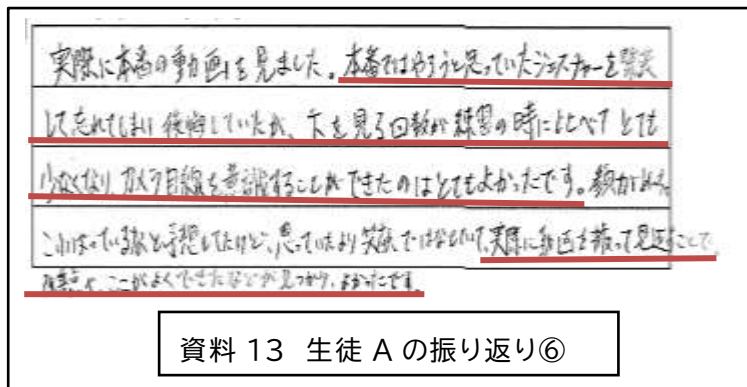 実際に本番の動画を見ました。本番ではやろうと思っていたジェスチャーを緊張
して忘れてしまい後悔していたが、下を見る回数が練習の時に比べてとても
少なくなり、カメラ目線を意識することができたのはとてもよかったです。
こわばっている顔と予想してたけど、思っていたより笑顔で実際に動画を撮って見返すことで、
改善点や、ここがよくできたなどが見つかり、よかったです。
資料 13 生徒 A の振り返り⑥